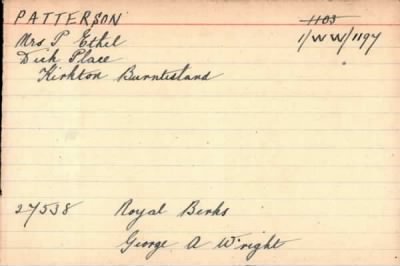 PATTERSON 1103
Mrs P Ethel 1/WW/1197
Dick Place
Kirkton Burntisland
27538 Royal Berks
George A Wright